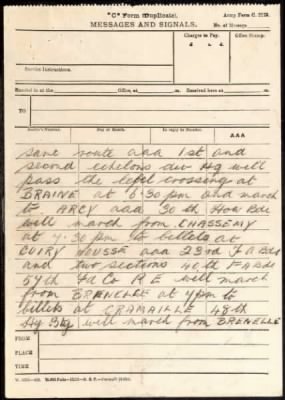 "C" Form (Duplicate).
Army Form C. 2123.
MESSAGES AND SIGNALS.
No. of Message
Charges to Pay.
£ s. d.
Office Stamp.
Service Instructions.
Handed in at the Office, at m. Received here at m.
TO
Sender's Number. Day of Month. In reply to Number. AAA
same route aaa 1st and
second echelons div Hq will
pass the level crossing at
BRAINE at 6.30 pm and march
to ARCY aaa 30th How Bde
will march from CHASSEMY
at 4.30 pm to billets at
CUIRY HOUSSE aaa 23rd F A Bde
and two sections 40th FABde
57th Fd Co R E will march
from BRENELLE at 4 pm to
billets at CRAMAILLE 48th
Hy Bty will march from BRENELLE
FROM
PLACE
TIME